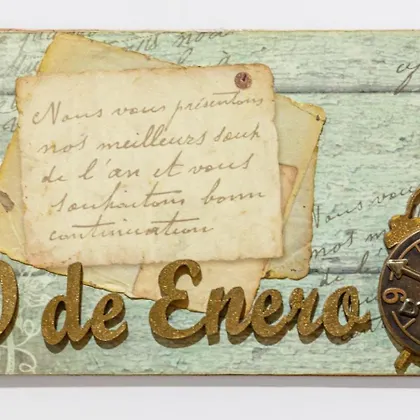 Nous vous présentons
nos meilleurs souh
de l'an et vous
souhaitons bonn
continuation
Nous vous
nos mei
de l'
de Enero
9